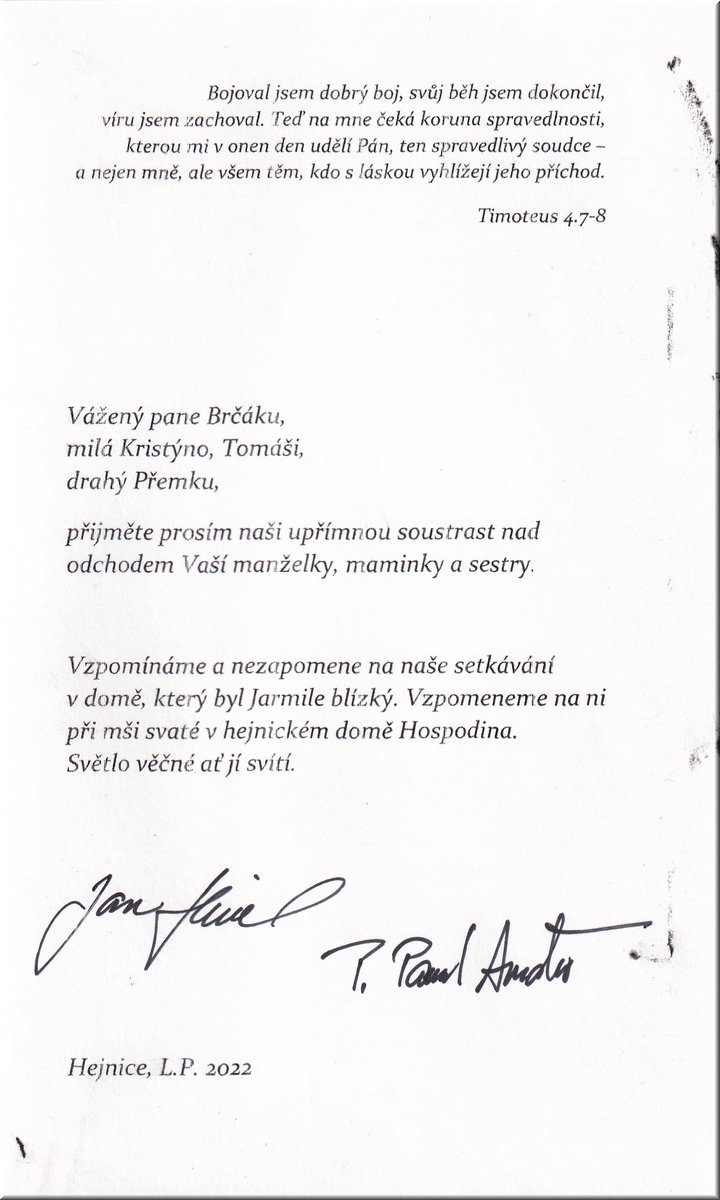 Bojoval jsem dobrý boj, svůj běh jsem dokončil,
víru jsem zachoval. Teď na mne čeká koruna spravedlnosti,
kterou mi v onen den udělí Pán, ten spravedlivý soudce –
a nejen mně, ale všem těm, kdo s láskou vyhlížejí jeho příchod.
Timoteus 4.7-8
Vážený pane Brčáku,
milá Kristýno, Tomáši,
drahý Přemku,
přijměte prosím naši upřímnou soustrast nad
odchodem Vaší manželky, maminky a sestry.
Vzpomínáme a nezapomene na naše setkávání
v domě, který byl Jarmile blízký. Vzpomeneme na ni
při mši svaté v hejnickém domě Hospodina.
Světlo věčné ať jí svítí.
Jan
P. Pavel
Hejnice, L.P. 2022